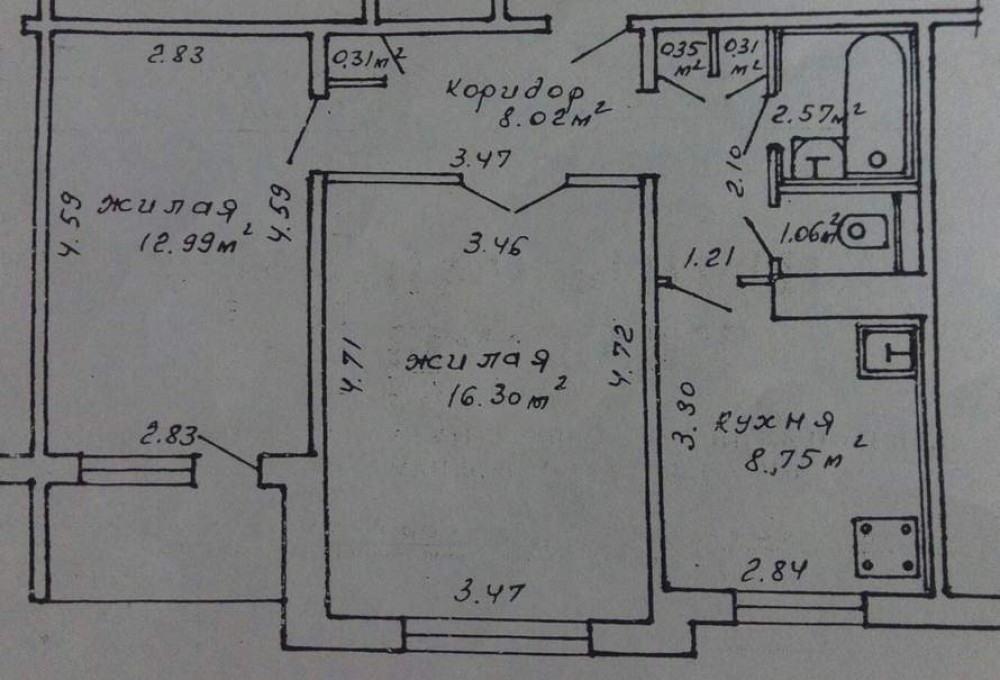 2.83
0.31 м²
коридор
8.02 м²
0.35
м²
0.31
м²
2.57 м²
3.47
2.10
4.59
жилая
12.99 м²
4.59
3.46
1.21
1.06 м²
4.71
жилая
16.30 м²
4.72
3.90
кухня
8,75 м²
2.83
3.47
2.84